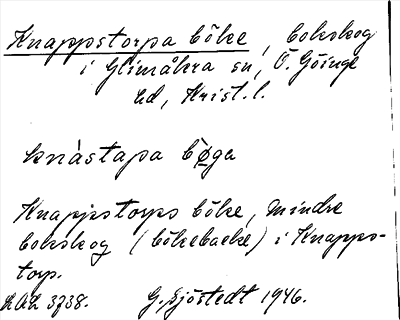 Knappstorpa böke, bokskog
i Glimåkra sn, Ö. Göinge
hd, Krist. l.
knàstapa bø̀ga
Knappstorps böke, mindre
bokskog (bökebacke) i Knapps-
torp.
LAL 3738. G. Sjöstedt 1946.